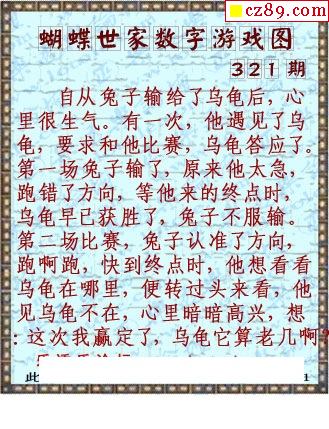 cz89.com
蝴蝶世家数字游戏图
321期
自从兔子输给了乌龟后，心
里很生气。有一次，他遇见了乌
龟，要求和他比赛，乌龟答应了。
第一场兔子输了，原来他太急，
跑错了方向，等他来的终点时，
乌龟早已获胜了，兔子不服输。
第二场比赛，兔子认准了方向，
跑啊跑，快到终点时，他想看看
乌龟在哪里，便转过头来看，他
见乌龟不在，心里暗暗高兴，想
：这次我赢定了，乌龟它算老几啊？
此